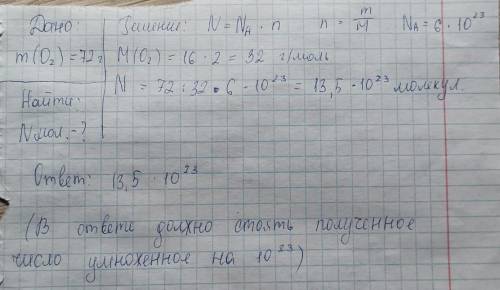 Дано:
m(O₂)=72г
Найти:
Nмол.-?
Решение: N=Nₐ·n n=m/M Nₐ=6·10²³
M(O₂)=16·2=32 г/моль
N=72:32·6·10²³=13,5·10²³молкул.
Ответ: 13,5·10²³
(В ответе должно стоять полученное
число умноженное на 10²³)